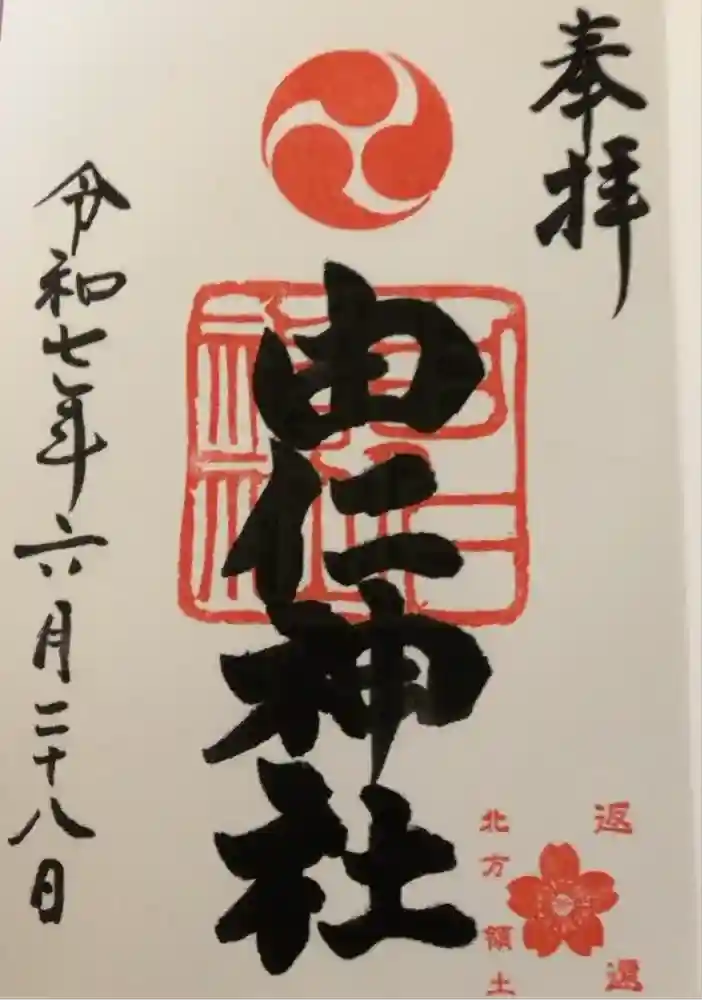 奉拝
由仁神社
令和七年六月二十八日
返還
北方領土